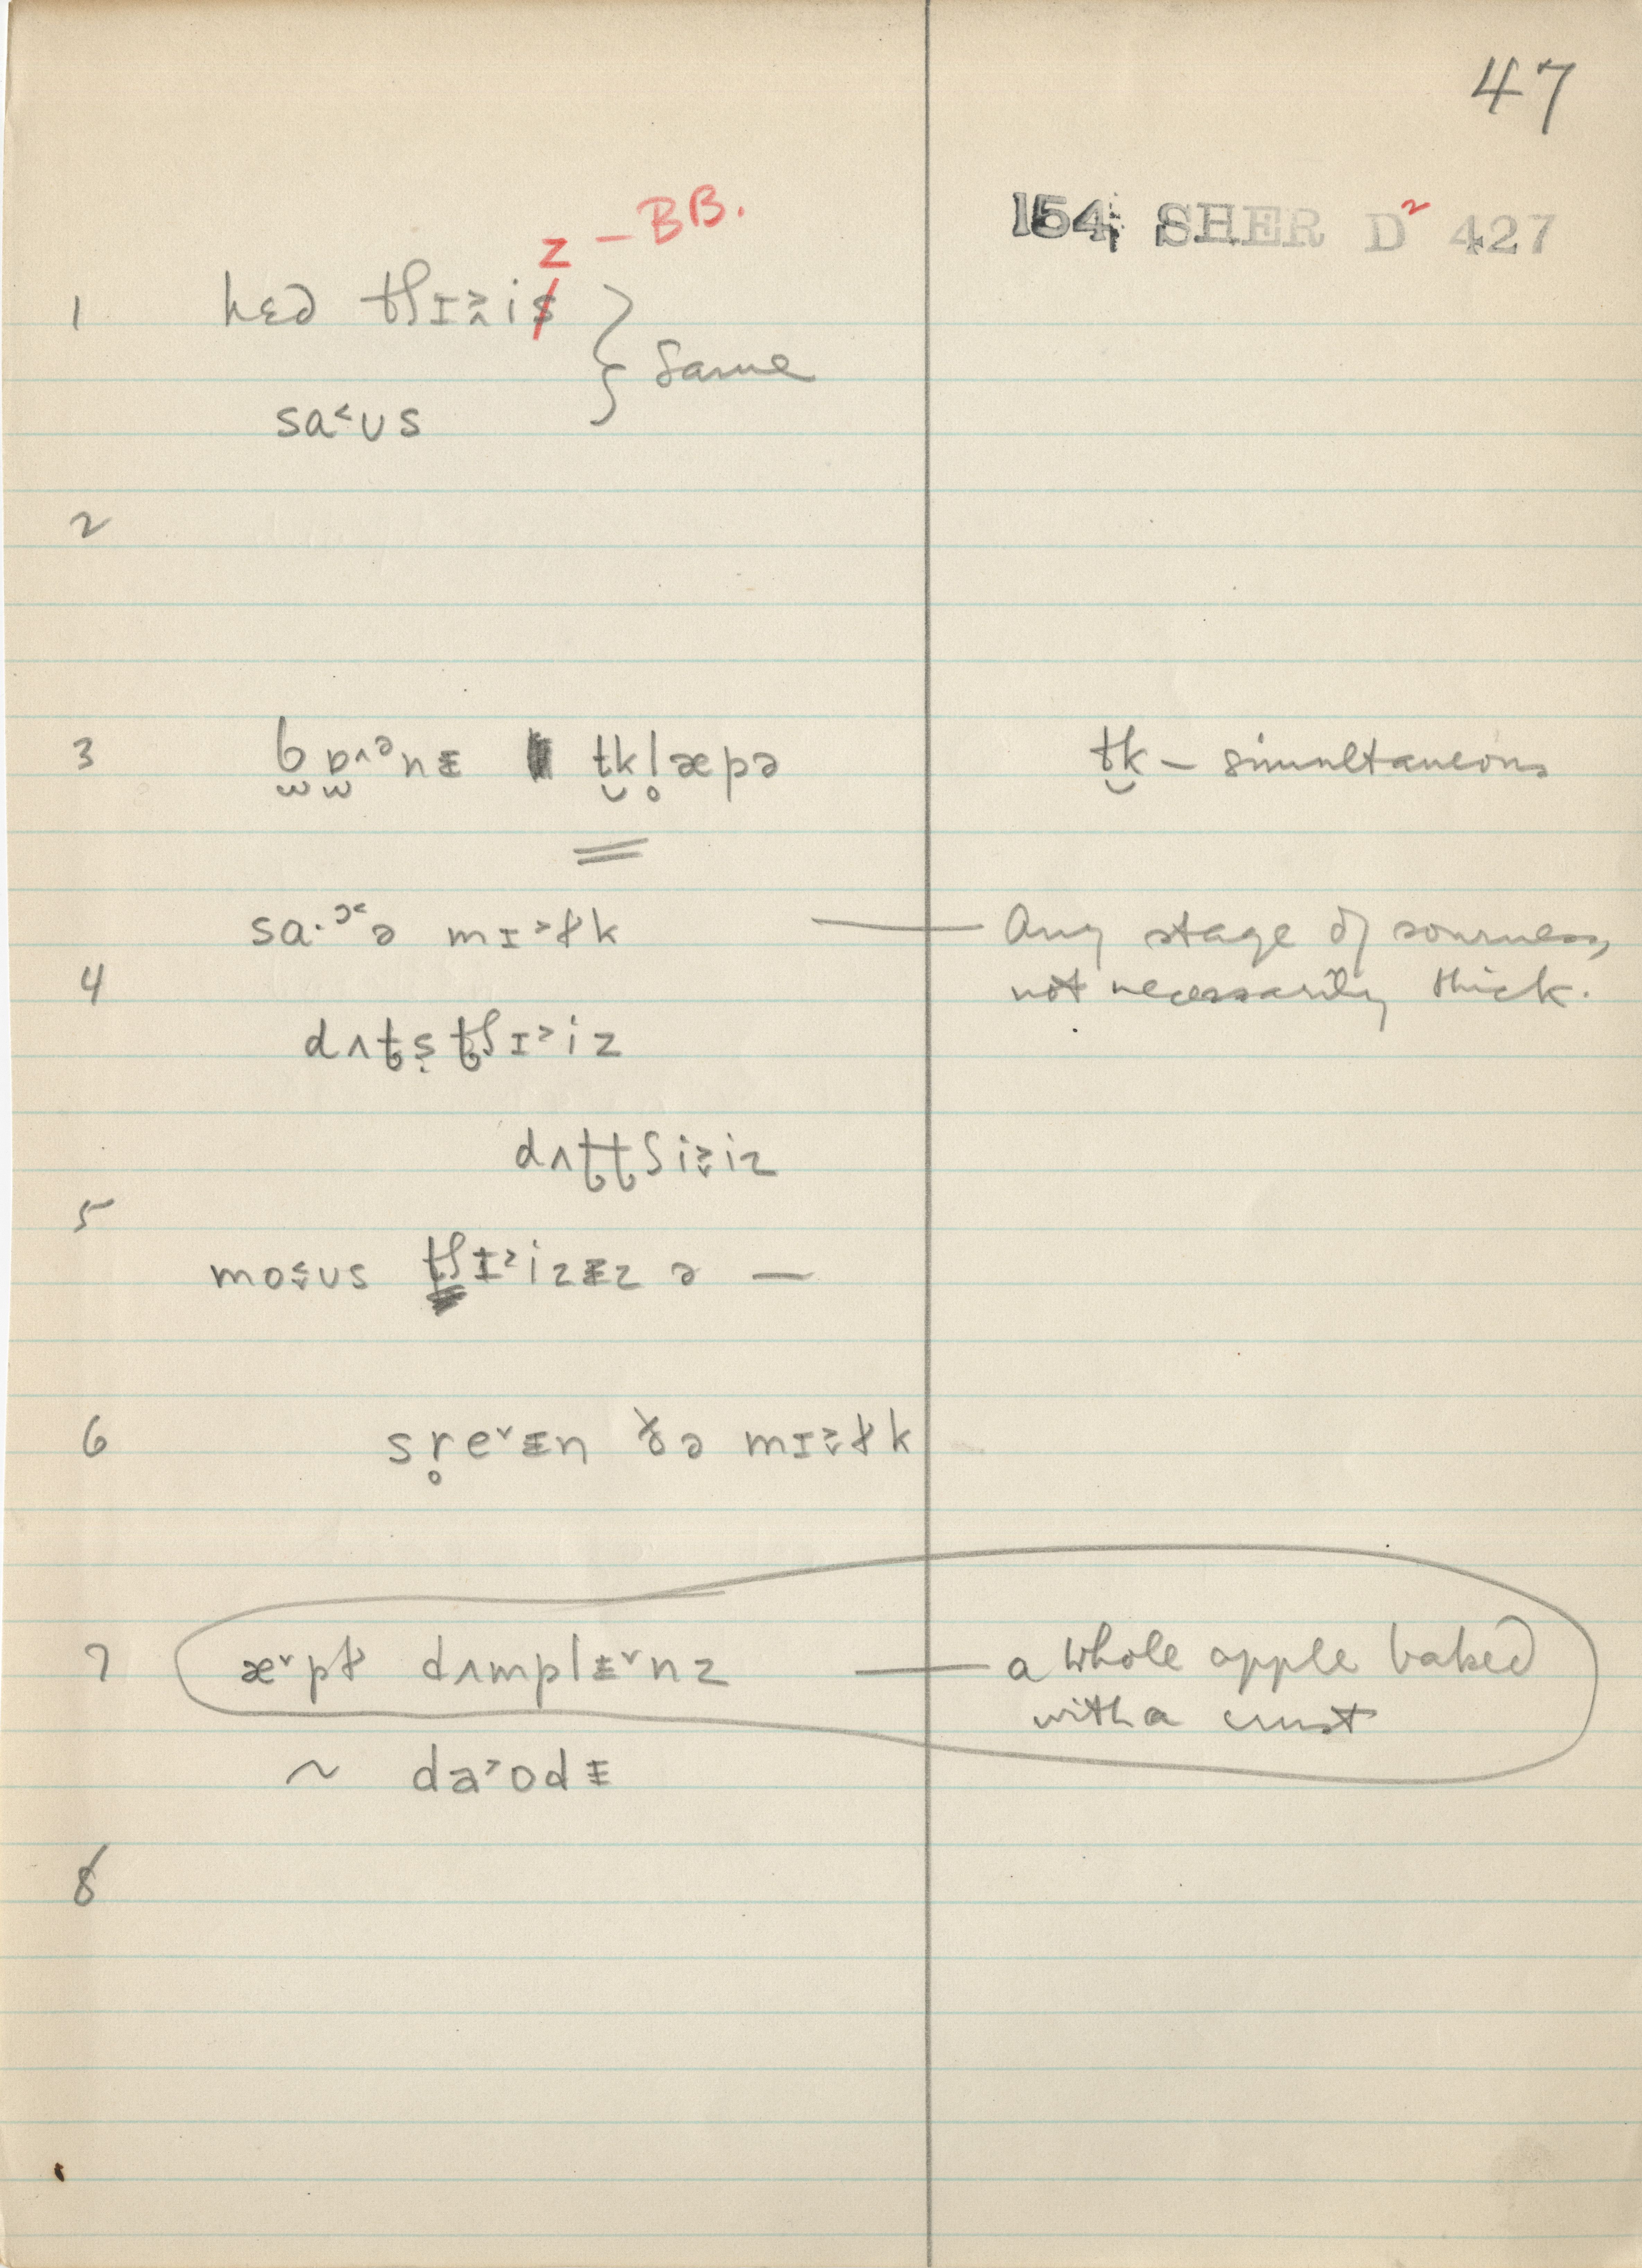 47
154 SHER D2 427
z – BB.
1 hɛd tʃɪ˃is } Same
sa˂ʊs
2
3 bɒ^ənᵻ t̮kl̥æpə t̮k – simultaneous
sa·ɔ˂ə mɪ˃ɫk —— Any stage of sourness,
4 not necessarily thick.
dʌt̢ṣt̢ʃɪ˃iz
dʌt̢t̢ʃi˃iz
5
mo˂ʊs tʃɪ˃izᵻz ə —
6 sr̥e˅ᵻn ðə mɪ˃ɫk
7 æ˅pɫ dʌmplᵻ˅nz —— a whole apple baked
with a crust
~ da˃ʊdᵻ
8